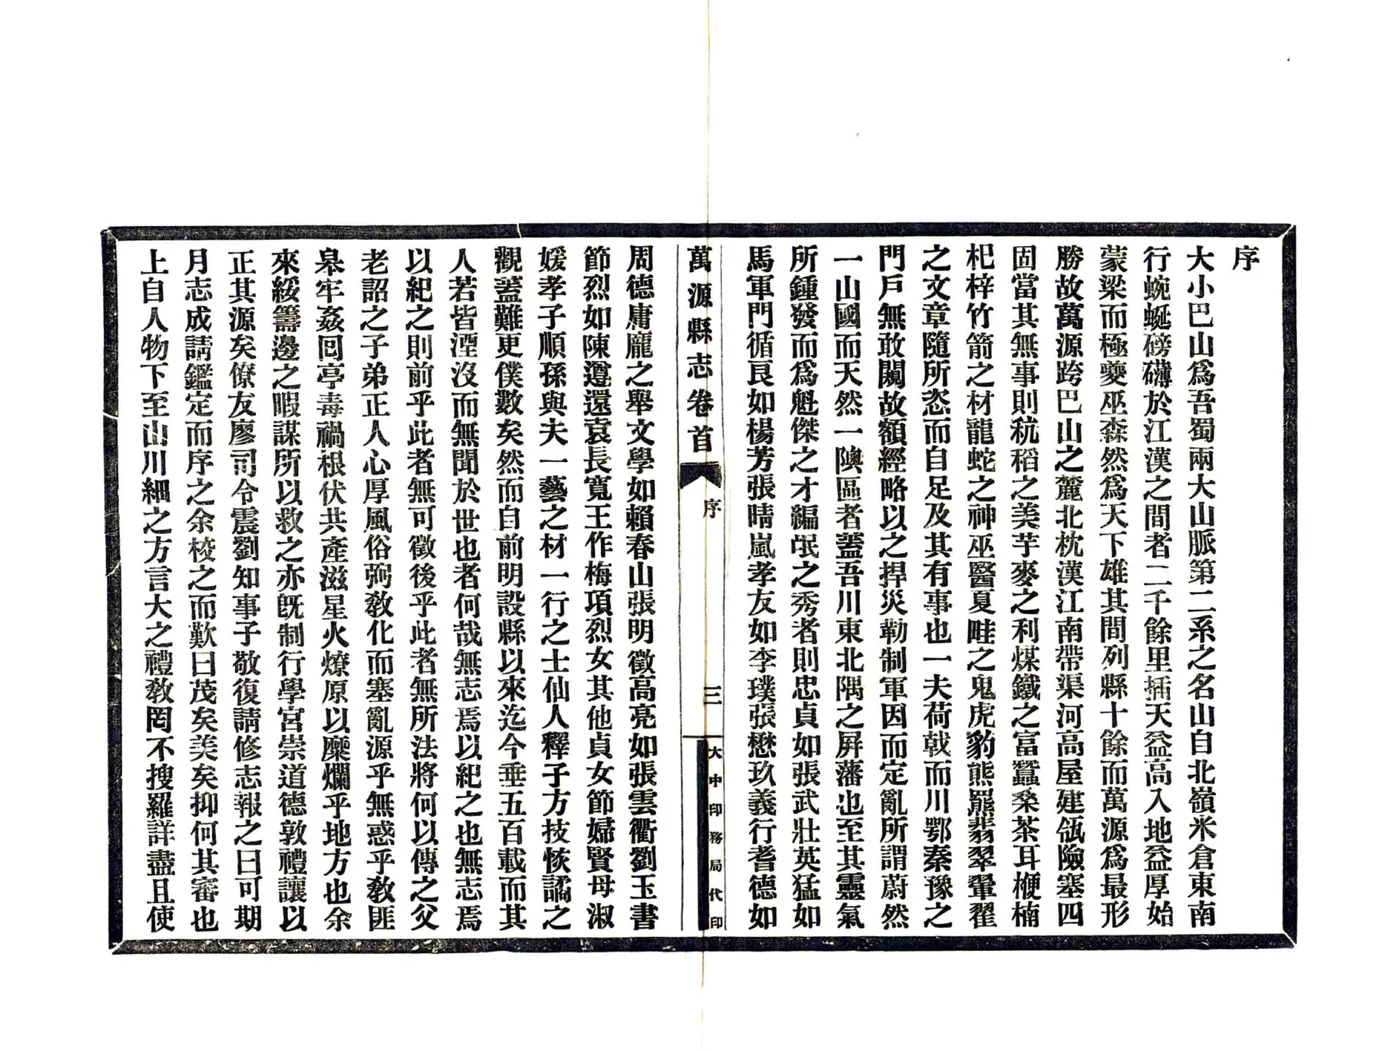 序
大小巴山爲吾蜀兩大山脈第二系之名山自北嶺米倉東南
行蜿蜒磅礴於江漢之間者二千餘里插天益高入地益厚始
蒙梁而極夔巫森然爲天下雄其間列縣十餘而萬源爲最形
勝故萬源跨巴山之麓北枕漢江南帶渠河高屋建瓴險塞四
固當其無事則秔稻之美芋麥之利煤鐵之富蠶桑茶耳楩楠
杞梓竹箭之材龍蛇之神巫醫夏畦之鬼虎豹熊羆翡翠翬翟
之文章隨所恣而自足及其有事也一夫荷戟而川鄂秦豫之
門戶無敢闖故額經略以之捍災勒制軍因而定亂所謂蔚然
一山國而天然一隩區者蓋吾川東北隅之屛藩也至其靈氣
所鍾發而爲魁傑之才編氓之秀者則忠貞如張武壯英猛如
馬軍門循良如楊芳張晴嵐孝友如李璞張懋玖義行耆德如
萬源縣志卷首
序
三
大中印務局代印
周德庸龐之舉文學如賴春山張明徵高亮如張雲衢劉玉書
節烈如陳遵還袁長寬王作梅項烈女其他貞女節婦賢母淑
媛孝子順孫與夫一藝之材一行之士仙人釋子方技恢譎之
觀蓋難更僕數矣然而自前明設縣以來迄今垂五百載而其
人若皆湮沒而無聞於世也者何哉無志焉以紀之也無志焉
以紀之則前乎此者無可徵後乎此者無所法將何以傳之父
老詔之子弟正人心厚風俗弼敎化而塞亂源乎無惑乎敎匪
臯牢姦囘亭毒禍根伏共產滋星火燎原以糜爛乎地方也余
來綏籌邊之暇謀所以救之亦旣制行學宮崇道德敦禮讓以
正其源矣僚友廖司令震劉知事子敬復請修志報之曰可期
月志成請鑑定而序之余校之而歎曰茂矣美矣抑何其審也
上自人物下至山川細之方言大之禮敎罔不搜羅詳盡且使